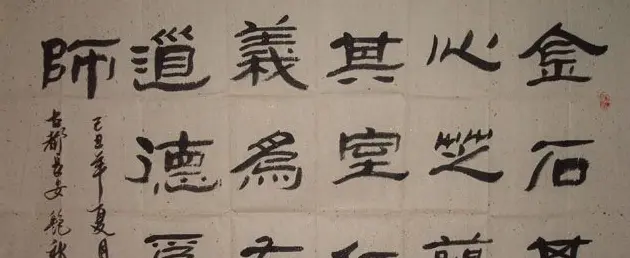 金石其
心芝蘭
其室仁
義為友
道德爲
師
己丑年夏月
古都長安